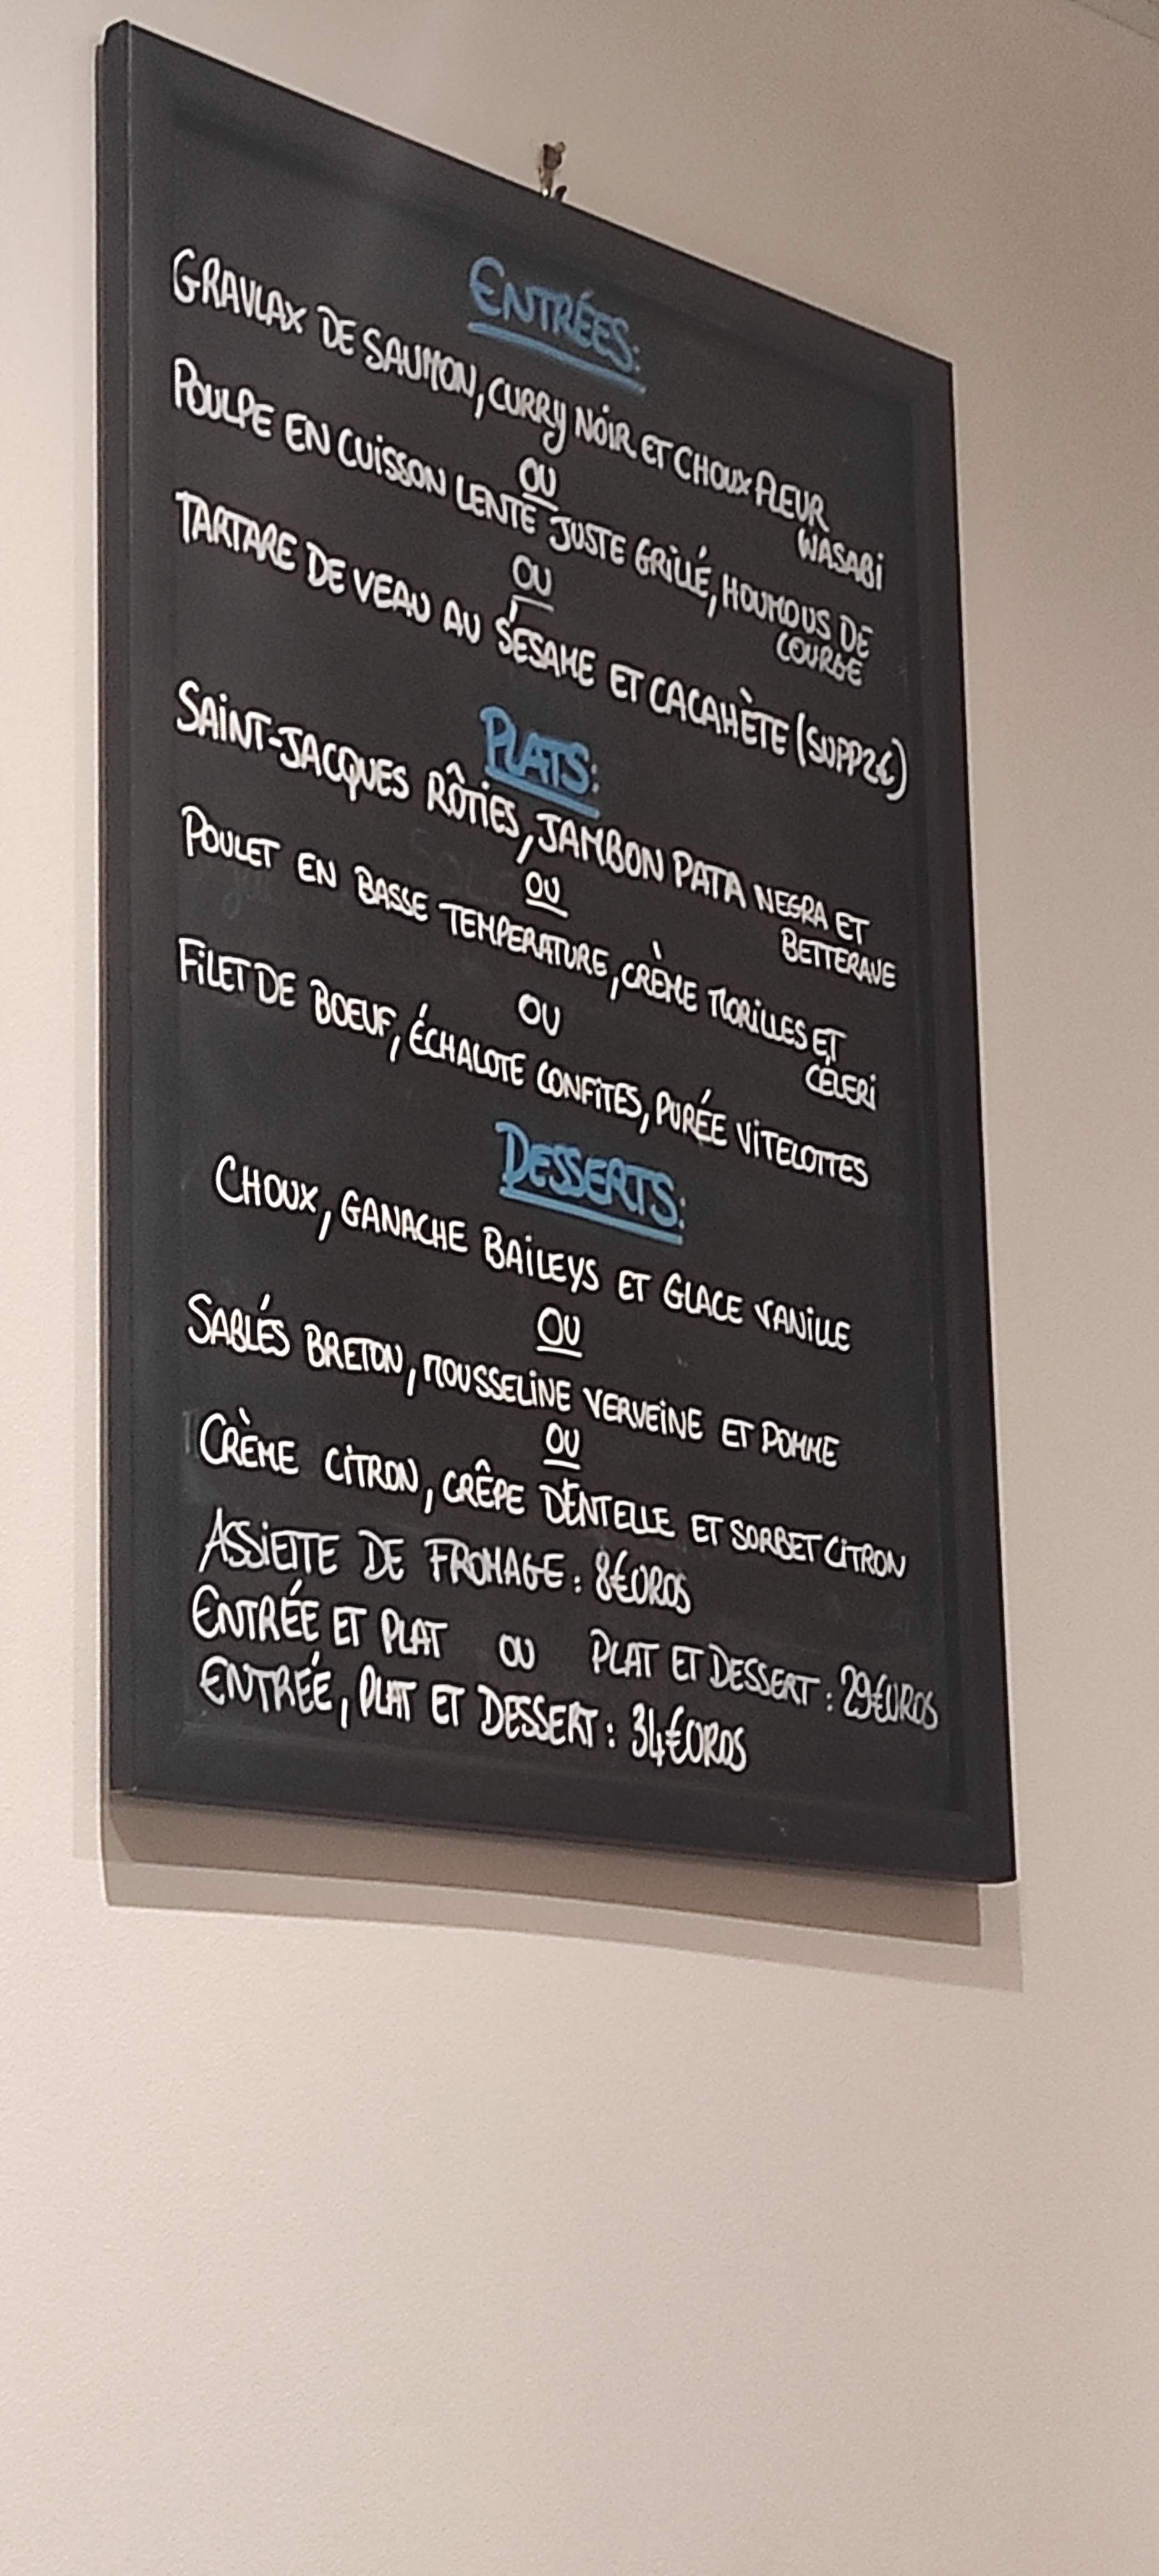 ENTRÉES:
GRAVLAX DE SAUMON, CURRY NOIR ET CHOUX FLEUR
WASABI
OU
POULPE EN CUISSON LENTE JUSTE GRILLÉ, HOUMOUS DE
COURGE
OU
TARTARE DE VEAU AU SÉSAME ET CACAHÈTE (SUPP2€)
PLATS:
SAINT-JACQUES RÔTIES, JAMBON PATA NEGRA ET
BETTERAVE
OU
POULET EN BASSE TEMPERATURE, CRÈME MORILLES ET
CÉLERI
OU
FILET DE BOEUF, ÉCHALOTE CONFITES, PURÉE VITELOTTES
DESSERTS:
CHOUX, GANACHE BAILEYS ET GLACE VANILLE
OU
SABLÉS BRETON, MOUSSELINE VERVEINE ET POMME
OU
CRÈME CITRON, CRÊPE DENTELLE ET SORBET CITRON
ASSIETTE DE FROMAGE: 8€UROS
ENTRÉE ET PLAT OU PLAT ET DESSERT: 29€UROS
ENTRÉE, PLAT ET DESSERT: 34€UROS